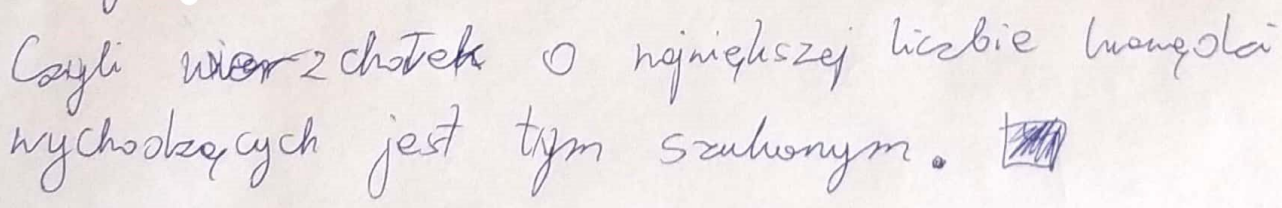 Czyli wierzchołek o największej liczbie krawędzi
wychodzących jest tym szukanym.